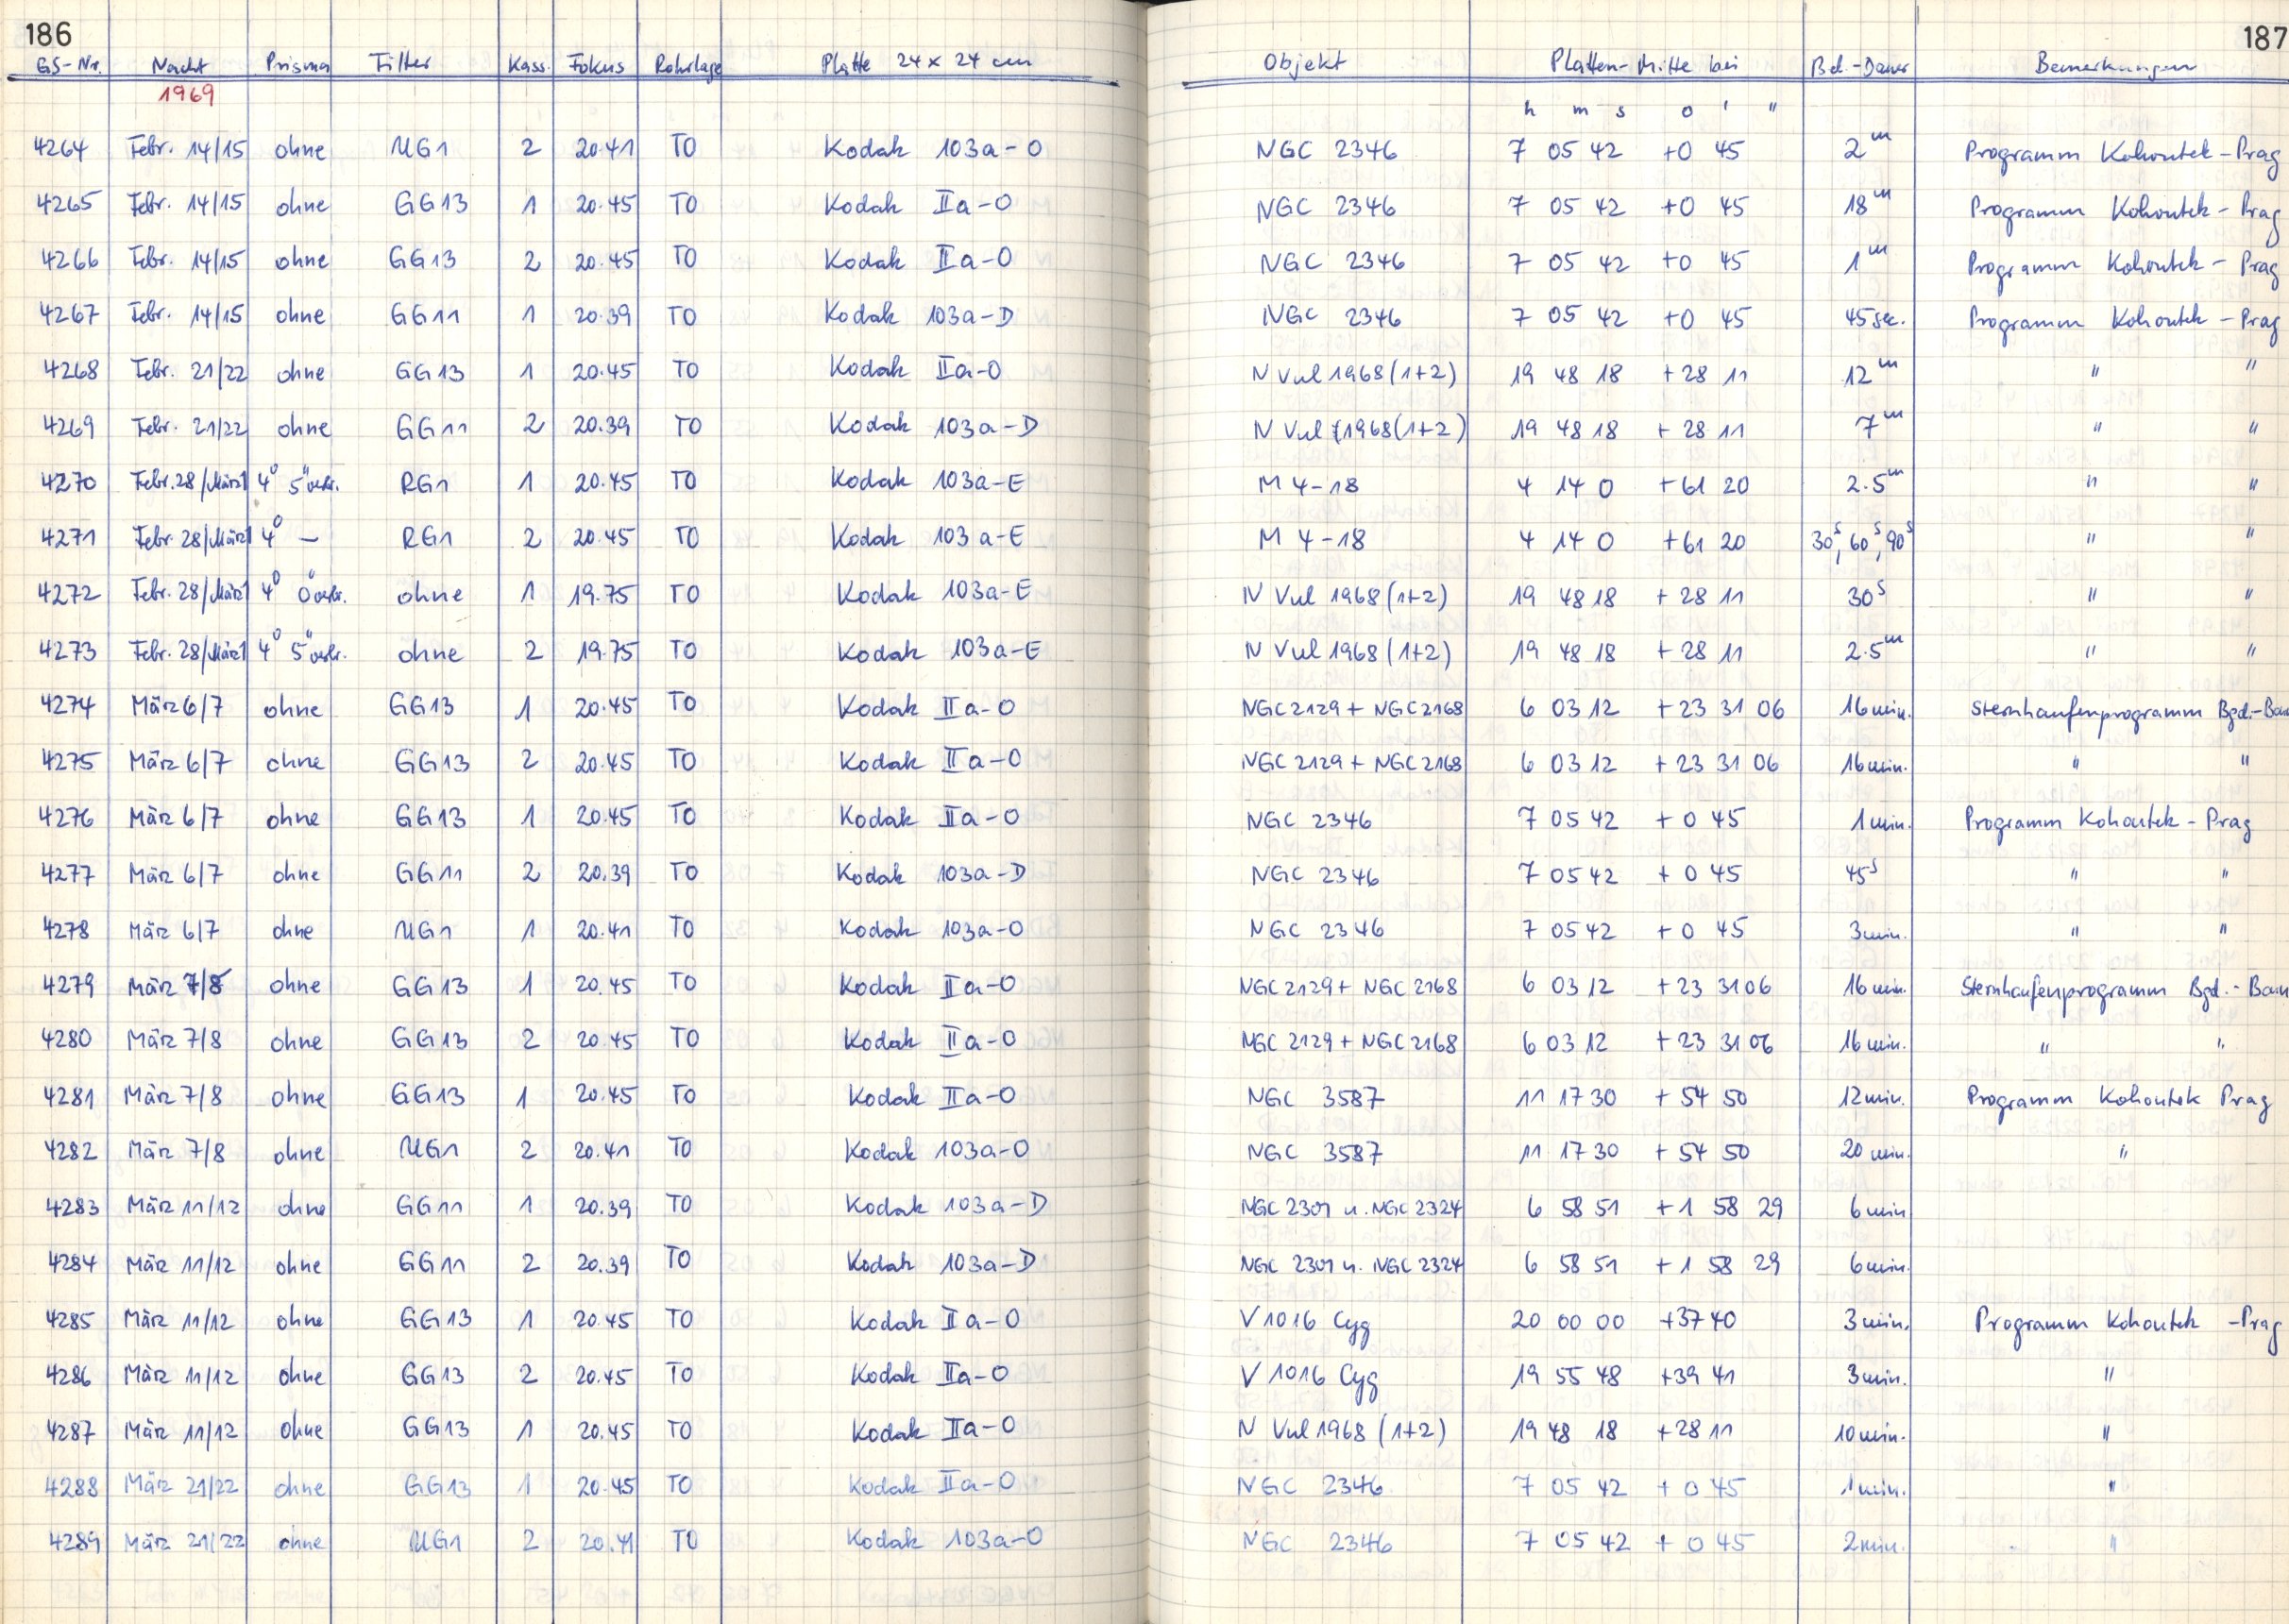 186 187
GS-Nr. Nacht Prisma Filter Kass. Fokus Rohrlage Platte 24 x 24 cm Objekt Platten-Mitte bei Bel.-Dauer Bemerkungen
1969 h m s o ' "
4264 Febr. 14/15 ohne UG1 2 20.41 TO Kodak 103a-O NGC 2346 7 05 42 +0 45 2m Programm Kohoutek - Prag
4265 Febr. 14/15 ohne GG13 1 20.45 TO Kodak IIa-O NGC 2346 7 05 42 +0 45 18m Programm Kohoutek - Prag
4266 Febr. 14/15 ohne GG13 2 20.45 TO Kodak IIa-O NGC 2346 7 05 42 +0 45 1m Programm Kohoutek - Prag
4267 Febr. 14/15 ohne GG11 1 20.39 TO Kodak 103a-D NGC 2346 7 05 42 +0 45 45 sec. Programm Kohoutek - Prag
4268 Febr. 21/22 ohne GG13 1 20.45 TO Kodak IIa-O N Vul 1968 (1+2) 19 48 18 +28 11 12m " "
4269 Febr. 21/22 ohne GG11 2 20.39 TO Kodak 103a-D N Vul 1968 (1+2) 19 48 18 +28 11 7m " "
4270 Febr. 28/März1 4° 5" verbr. RG1 1 20.45 TO Kodak 103a-E M 4-18 4 14 0 +61 20 2.5m " "
4271 Febr. 28/März1 4° — RG1 2 20.45 TO Kodak 103a-E M 4-18 4 14 0 +61 20 30s, 60s, 90s " "
4272 Febr. 28/März1 4° 0" verbr. ohne 1 19.75 TO Kodak 103a-E N Vul 1968 (1+2) 19 48 18 +28 11 30s " "
4273 Febr. 28/März1 4° 5" verbr. ohne 2 19.75 TO Kodak 103a-E N Vul 1968 (1+2) 19 48 18 +28 11 2.5m " "
4274 März 6/7 ohne GG13 1 20.45 TO Kodak IIa-O NGC 2129 + NGC 2168 6 03 12 +23 31 06 16 min. Sternhaufenprogramm Bgd.-
4275 März 6/7 ohne GG13 2 20.45 TO Kodak IIa-O NGC 2129 + NGC 2168 6 03 12 +23 31 06 16 min. " "
4276 März 6/7 ohne GG13 1 20.45 TO Kodak IIa-O NGC 2346 7 05 42 +0 45 1 min. Programm Kohoutek - Prag
4277 März 6/7 ohne GG11 2 20.39 TO Kodak 103a-D NGC 2346 7 05 42 +0 45 45s " "
4278 März 6/7 ohne UG1 1 20.41 TO Kodak 103a-O NGC 2346 7 05 42 +0 45 3 min. " "
4279 März 7/8 ohne GG13 1 20.45 TO Kodak IIa-O NGC 2129 + NGC 2168 6 03 12 +23 31 06 16 min. Sternhaufenprogramm Bgd.-
4280 März 7/8 ohne GG13 2 20.45 TO Kodak IIa-O NGC 2129 + NGC 2168 6 03 12 +23 31 06 16 min. " "
4281 März 7/8 ohne GG13 1 20.45 TO Kodak IIa-O NGC 3587 11 17 30 +54 50 12 min. Programm Kohoutek Prag
4282 März 7/8 ohne UG1 2 20.41 TO Kodak 103a-O NGC 3587 11 17 30 +54 50 20 min. "
4283 März 11/12 ohne GG11 1 20.39 TO Kodak 103a-D NGC 2301 u. NGC 2324 6 58 51 +1 58 29 6 min
4284 März 11/12 ohne GG11 2 20.39 TO Kodak 103a-D NGC 2301 u. NGC 2324 6 58 51 +1 58 29 6 min.
4285 März 11/12 ohne GG13 1 20.45 TO Kodak IIa-O V 1016 Cyg 20 00 00 +37 40 3 min. Programm Kohoutek - Prag
4286 März 11/12 ohne GG13 2 20.45 TO Kodak IIa-O V 1016 Cyg 19 55 48 +39 41 3 min. "
4287 März 11/12 ohne GG13 1 20.45 TO Kodak IIa-O N Vul 1968 (1+2) 19 48 18 +28 11 10 min. "
4288 März 21/22 ohne GG13 1 20.45 TO Kodak IIa-O NGC 2346 7 05 42 +0 45 1 min. "
4289 März 21/22 ohne UG1 2 20.41 TO Kodak 103a-O NGC 2346 7 05 42 +0 45 2 min. "